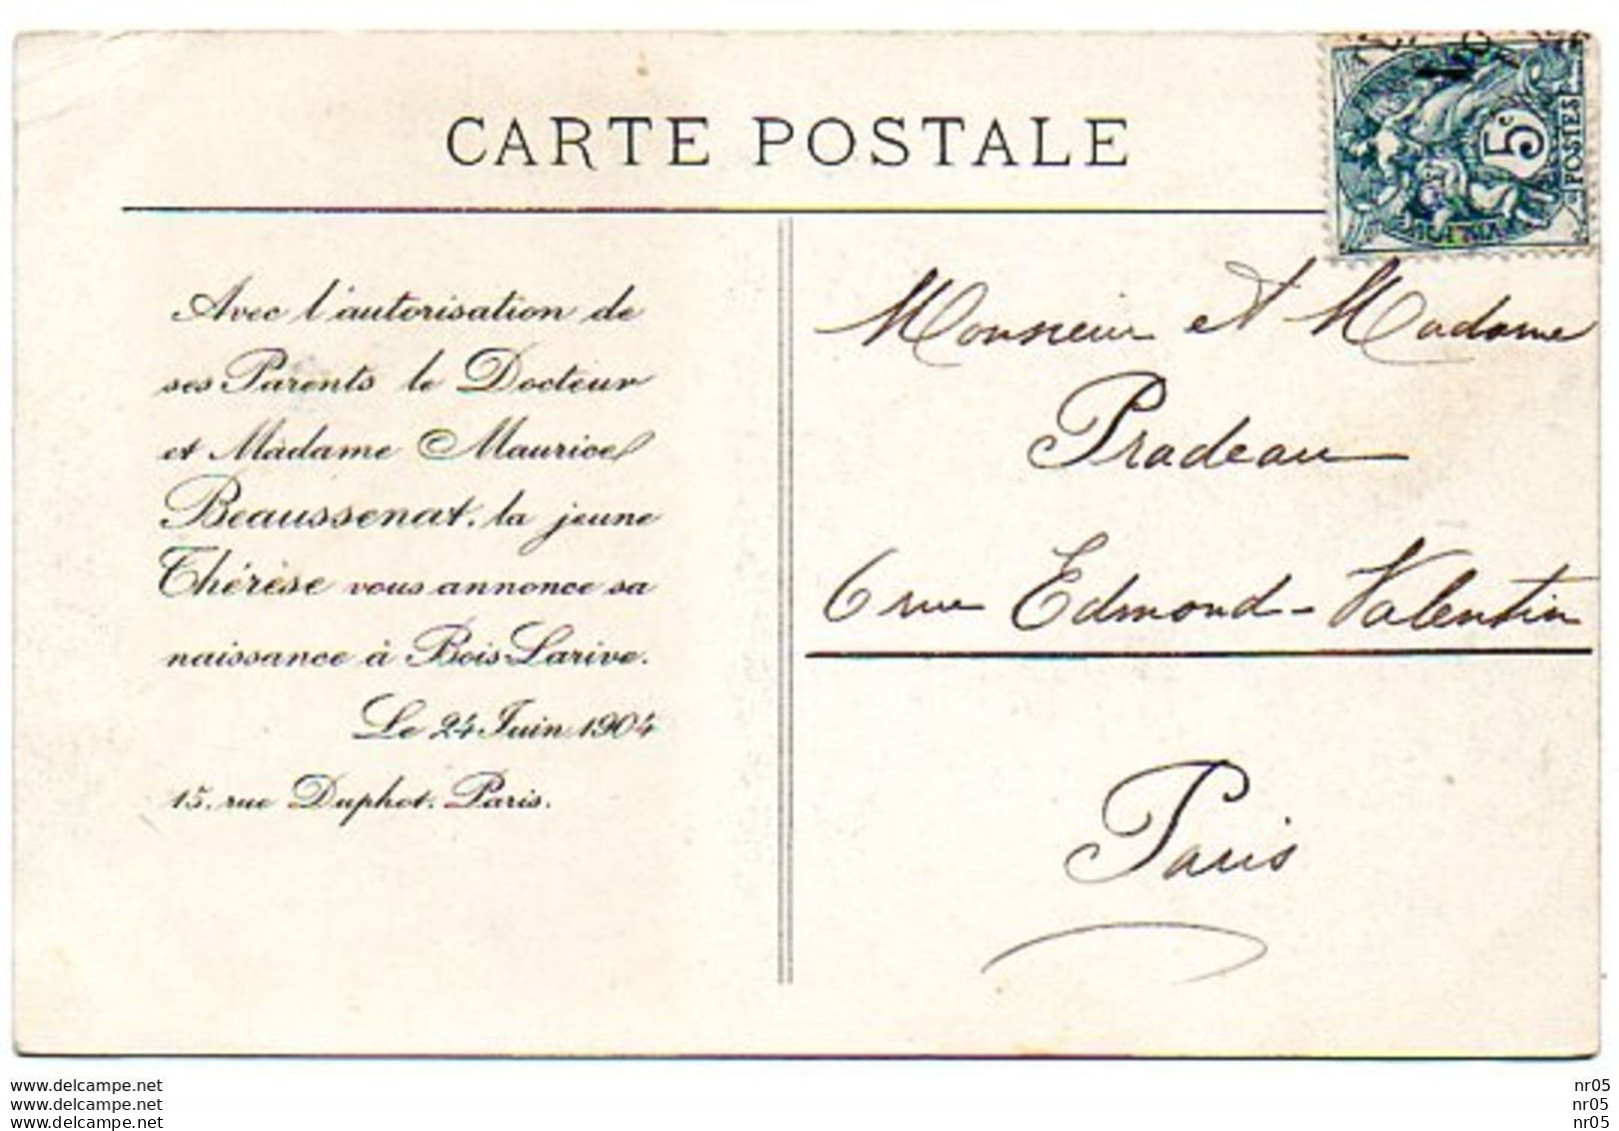 CARTE POSTALE
5c
POSTES
Avec l'autorisation de
ses Parents le Docteur
et Madame Maurice
Beaussenat, la jeune
Thérèse vous annonce sa
naissance à Bois-Larive.
Le 24 Juin 1904
15, rue Duphot, Paris.
Monsieur et Madame
Pradeau
6 rue Edmond-Valentin
Paris
www.delcampe.net
www.delcampe.net
www.delcampe.net
nr05
nr05
nr05